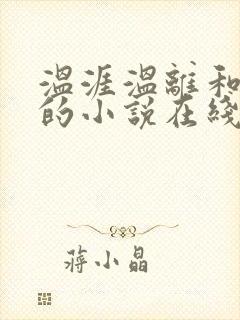 温涯温離和
的小說在綫
蔣小晶